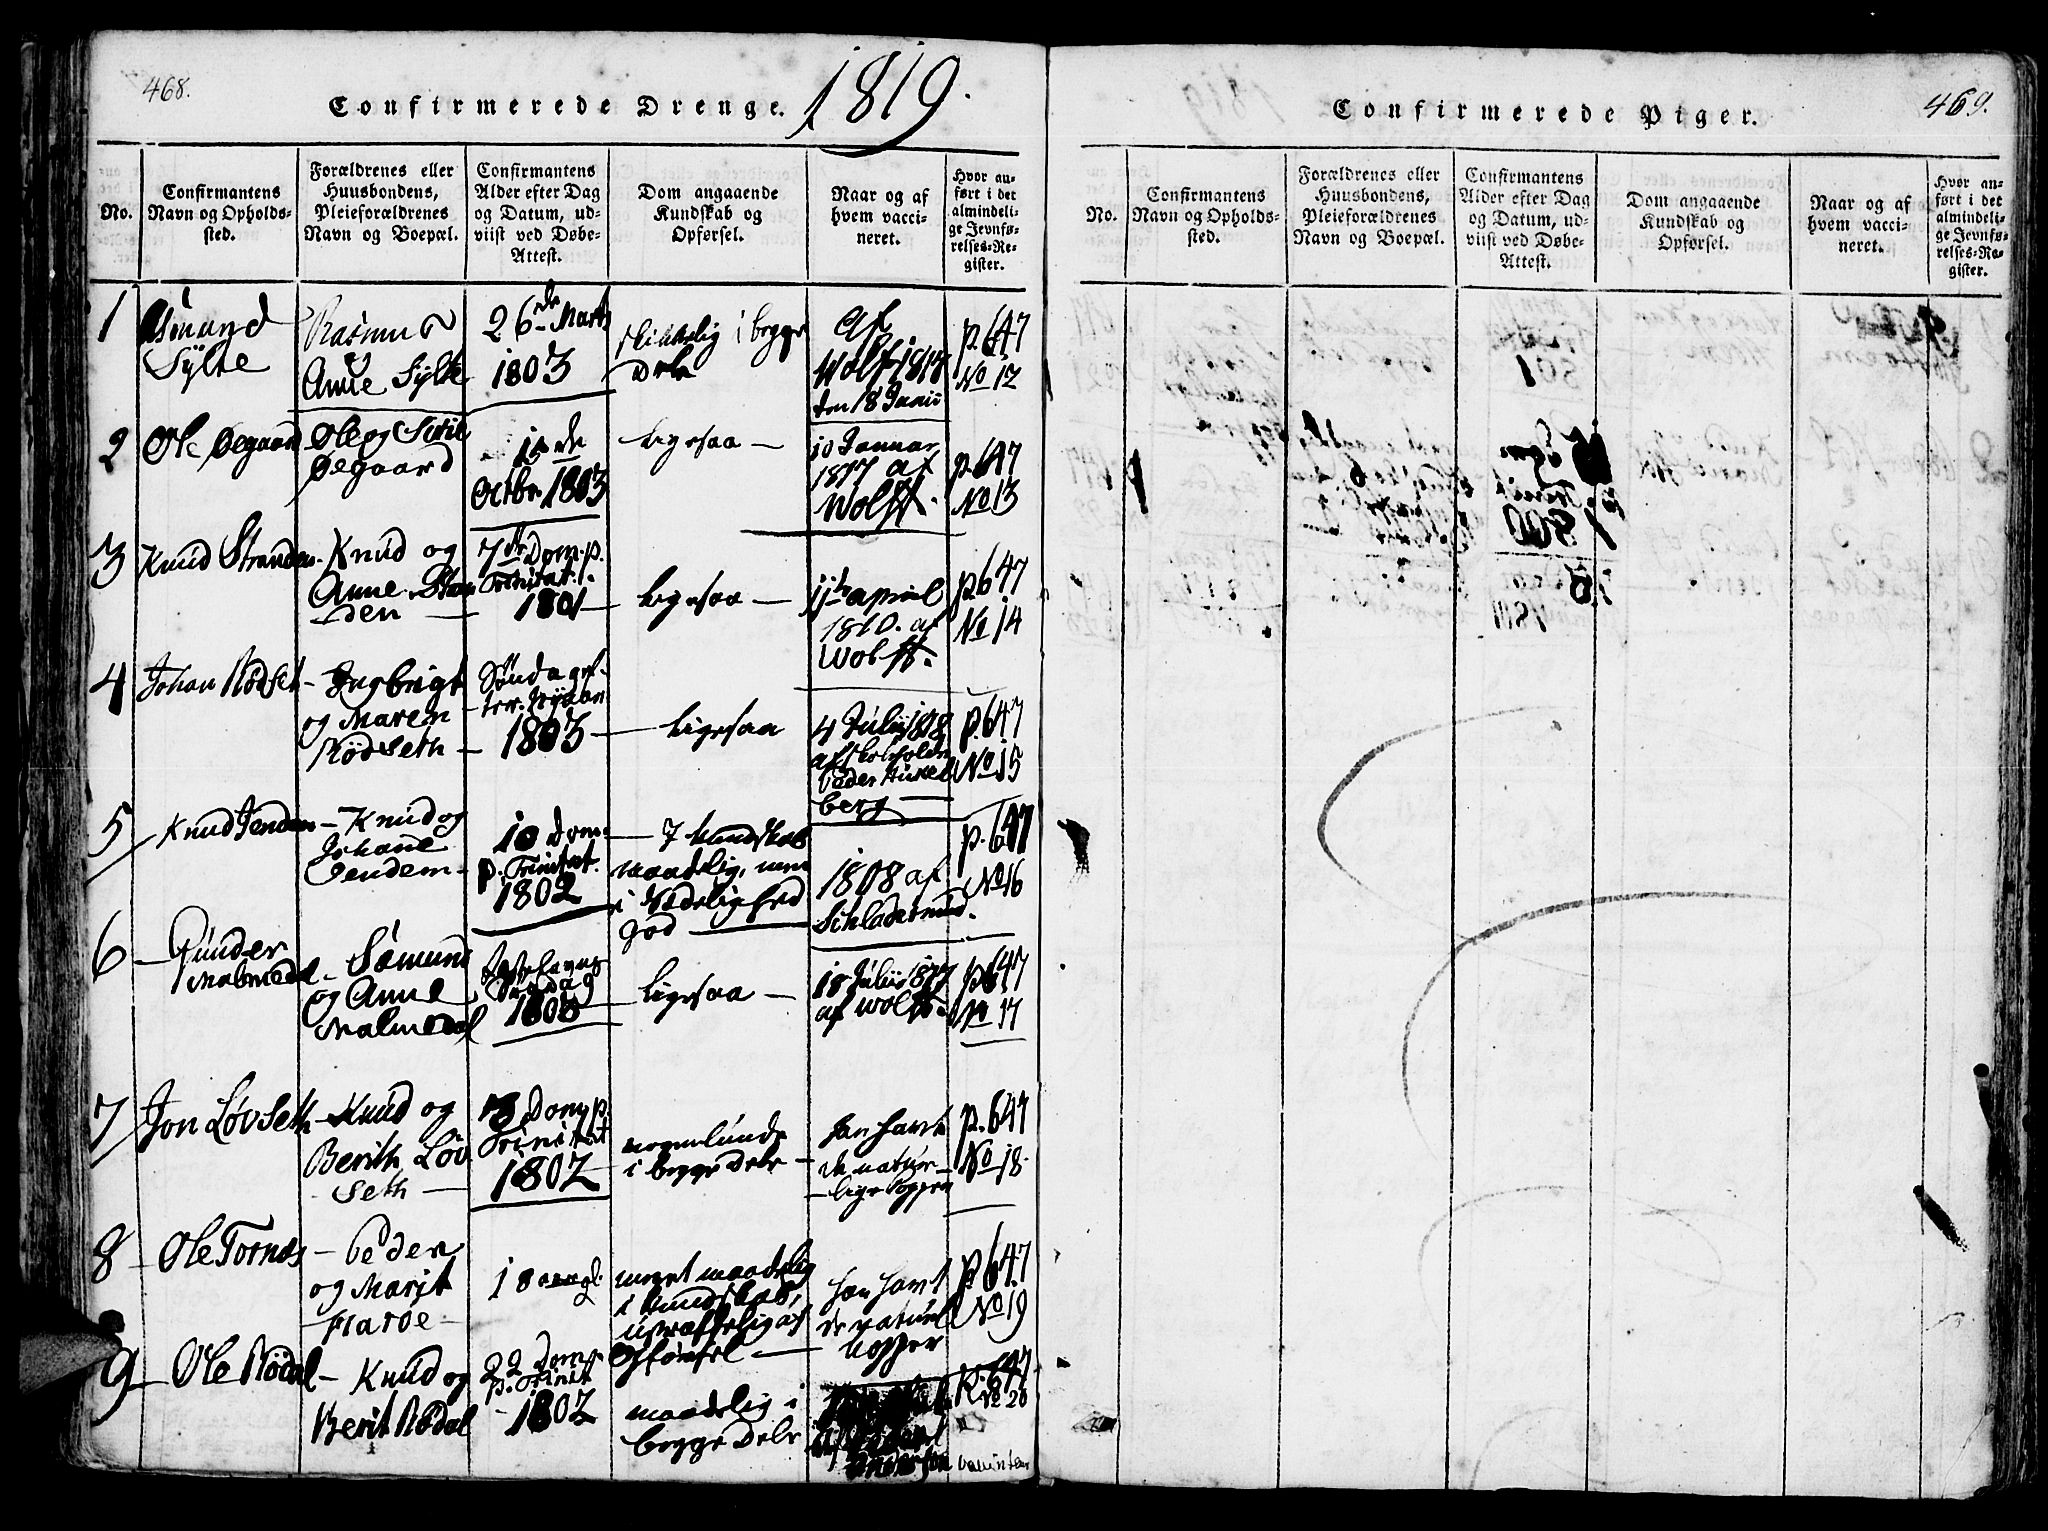 468.
Confirmerede Drenge. 1819.
No.
Confirmantens
Navn og Opholds-
sted.
Forældrenes eller
Huusbondens,
Pleieforældrenes
Navn og Boepæl.
Confirmantens
Alder efter Dag
og Datum, ud-
viist ved Døbe-
Attest.
Dom angaaende
Kundskab og
Opførsel.
Naar og af
hvem vacci-
neret.
Hvor an-
ført i det
almindeli-
ge Jevnfø-
relses-Re-
gister.
1
Asmund
Sylte
Rasmus &
Anne Sylte
26de Marts
1803
skikkelig i begge
Dele
Af
Wolf
den 18 Junii
p. 647
No 12
2
Ole Øegaard
Ole og Sitil
Øegaard
15de
Octbr 1803
Ligesaa —
10 Januar
1817 af
Wolff.
p. 647
No 13
3
Knud Stranden
Knud og
Anne Stran
den —
7de Dom. p.
Trinitat.
1801
— Ligesaa —
april
1810. af
Wolff.
p. 647
No 14
4
Johan Rödset
Ingbrigt
og Maren
Rödseth —
Søndag ef-
ter Nyaar
1803
— Ligesaa
4 Julii 1818
af
Peder Aukel
berg —
p. 647
No 15
5
Knud Jendem
— Knud og
Johane
Jendem
10 Dom.
p. Trinitat.
1802
— I Kundskab
maadelig, men
i Sædelighed
god —
1808 af
p. 647
No 16
6
Gunder
Malmedal
Sømund
og Anne
Malmedal
Søndag
1803
Ligesaa —
18 Julii 1817
af Wolff.
p. 647
No 17
7
Jon Løvseth
Knud og
Berith Løv
seth —
Dom p.
Trinitat
1802
nogenlunde
i begge Dele —
han havt
de natur-
lige Kopper
p. 647
No 18
8
Ole Tornes
— Peder
og Marit
Harde —
18 aar gl.
meget maadelig
i Kundskab,
ustraffelig af
Opførsel —
han havt
de naturl
Kopper
p. 647
No 19
9
Ole Rödal
— Knud og
Berit Rödal
22 Dom.
p. Trinit
1802
maadelig i
begge Dele
Anderson
p. 647
No 20
Confirmerede Piger.
469.
No.
Confirmantens
Navn og Opholds-
sted.
Forældrenes eller
Huusbondens,
Pleieforældrenes
Navn og Boepæl.
Confirmantens
Alder efter Dag
og Datum, ud-
viist ved Døbe-
Attest.
Dom angaaende
Kundskab og
Opførsel.
Naar og af
hvem vacci-
neret.
Hvor an-
ført i det
almindeli-
ge Jevnfø-
relses-Re-
gister.